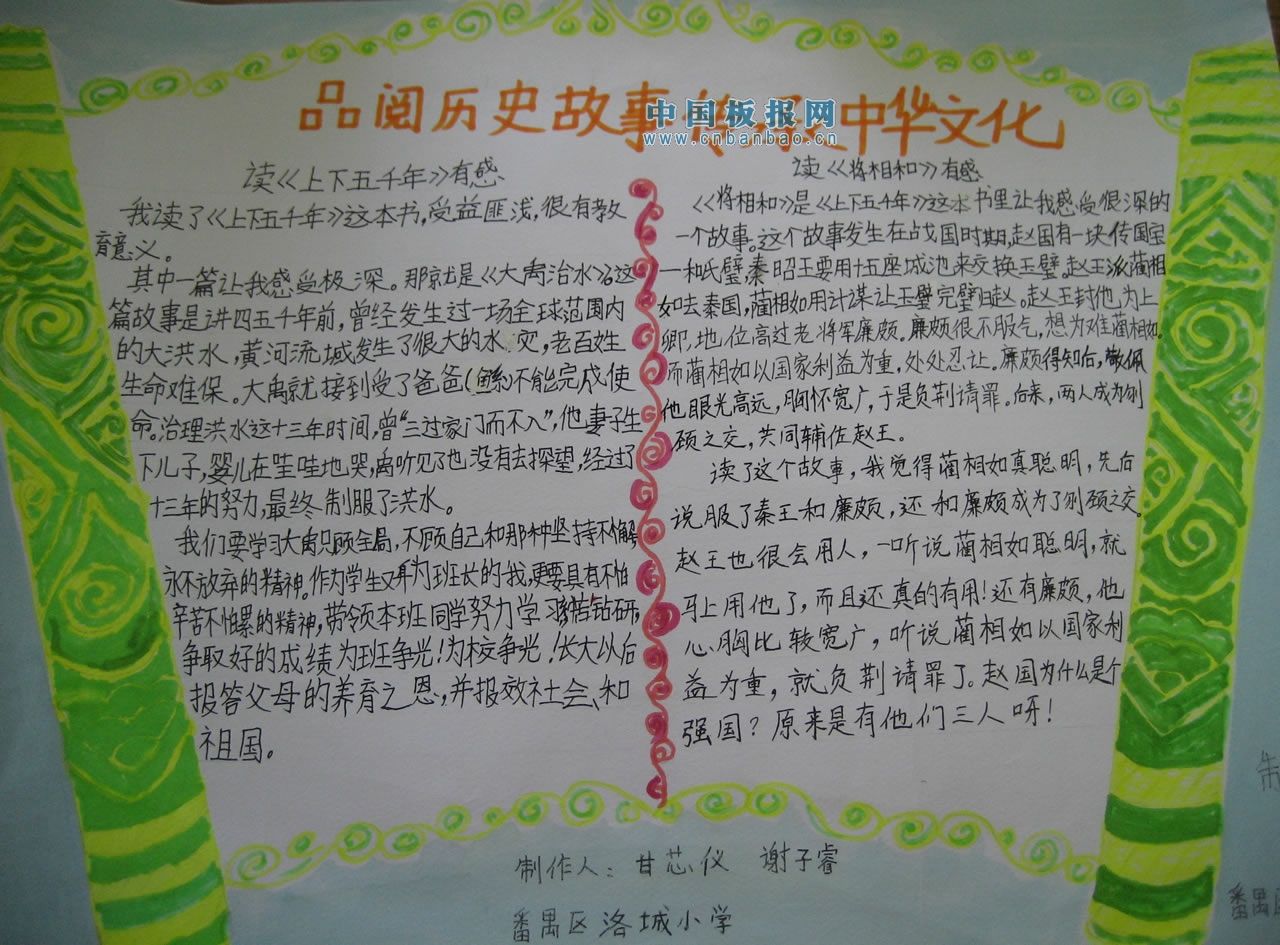 品阅历史故事 中华文化
中国板报网
www.cnbanbao.cn
读《上下五千年》有感
我读了《上下五千年》这本书,受益匪浅,很有教
育意义。
其中一篇让我感受极深。那就是《大禹治水》。这
篇故事是讲四五千年前,曾经发生过一场全球范围内
的大洪水,黄河流域发生了很大的水灾,老百姓
生命难保。大禹就接到受了爸爸(鲧)不能完成使
命。治理洪水这十三年时间,曾“三过家门而不入”,他妻子生
下儿子,婴儿在哇哇地哭,禹听见了也没有去探望,经过了
十三年的努力,最终制服了洪水。
我们要学习大禹只顾全局,不顾自己和那种坚持不懈
永不放弃的精神。作为学生又身为班长的我,更要具有不怕
辛苦不怕累的精神,带领本班同学努力学习刻苦钻研,
争取好的成绩为班争光!为校争光!长大以后
报答父母的养育之恩,并报效社会、和
祖国。
读《将相和》有感
《将相和》是《上下五千年》这本书里让我感受很深的
一个故事。这个故事发生在战国时期,赵国有一块传国宝
—和氏璧秦昭王要用十五座城池来交换玉璧。赵王派蔺相
如去秦国,蔺相如用计谋让玉璧完璧归赵。赵王封他为上
卿,地位高过老将军廉颇。廉颇很不服气,想为难蔺相如。
而蔺相如以国家利益为重,处处忍让。廉颇得知后,敬佩
他眼光高远,胸怀宽广,于是负荆请罪。后来,两人成为刎
颈之交,共同辅佐赵王。
读了这个故事,我觉得蔺相如真聪明,先后
说服了秦王和廉颇,还和廉颇成为了刎颈之交。
赵王也很会用人,一听说蔺相如聪明,就
马上用他了,而且还真的有用!还有廉颇,他
心胸比较宽广,听说蔺相如以国家利
益为重,就负荆请罪了。赵国为什么是个
强国?原来是有他们三人呀!
制作人:甘芯仪 谢子睿
番禺区洛城小学
番禺